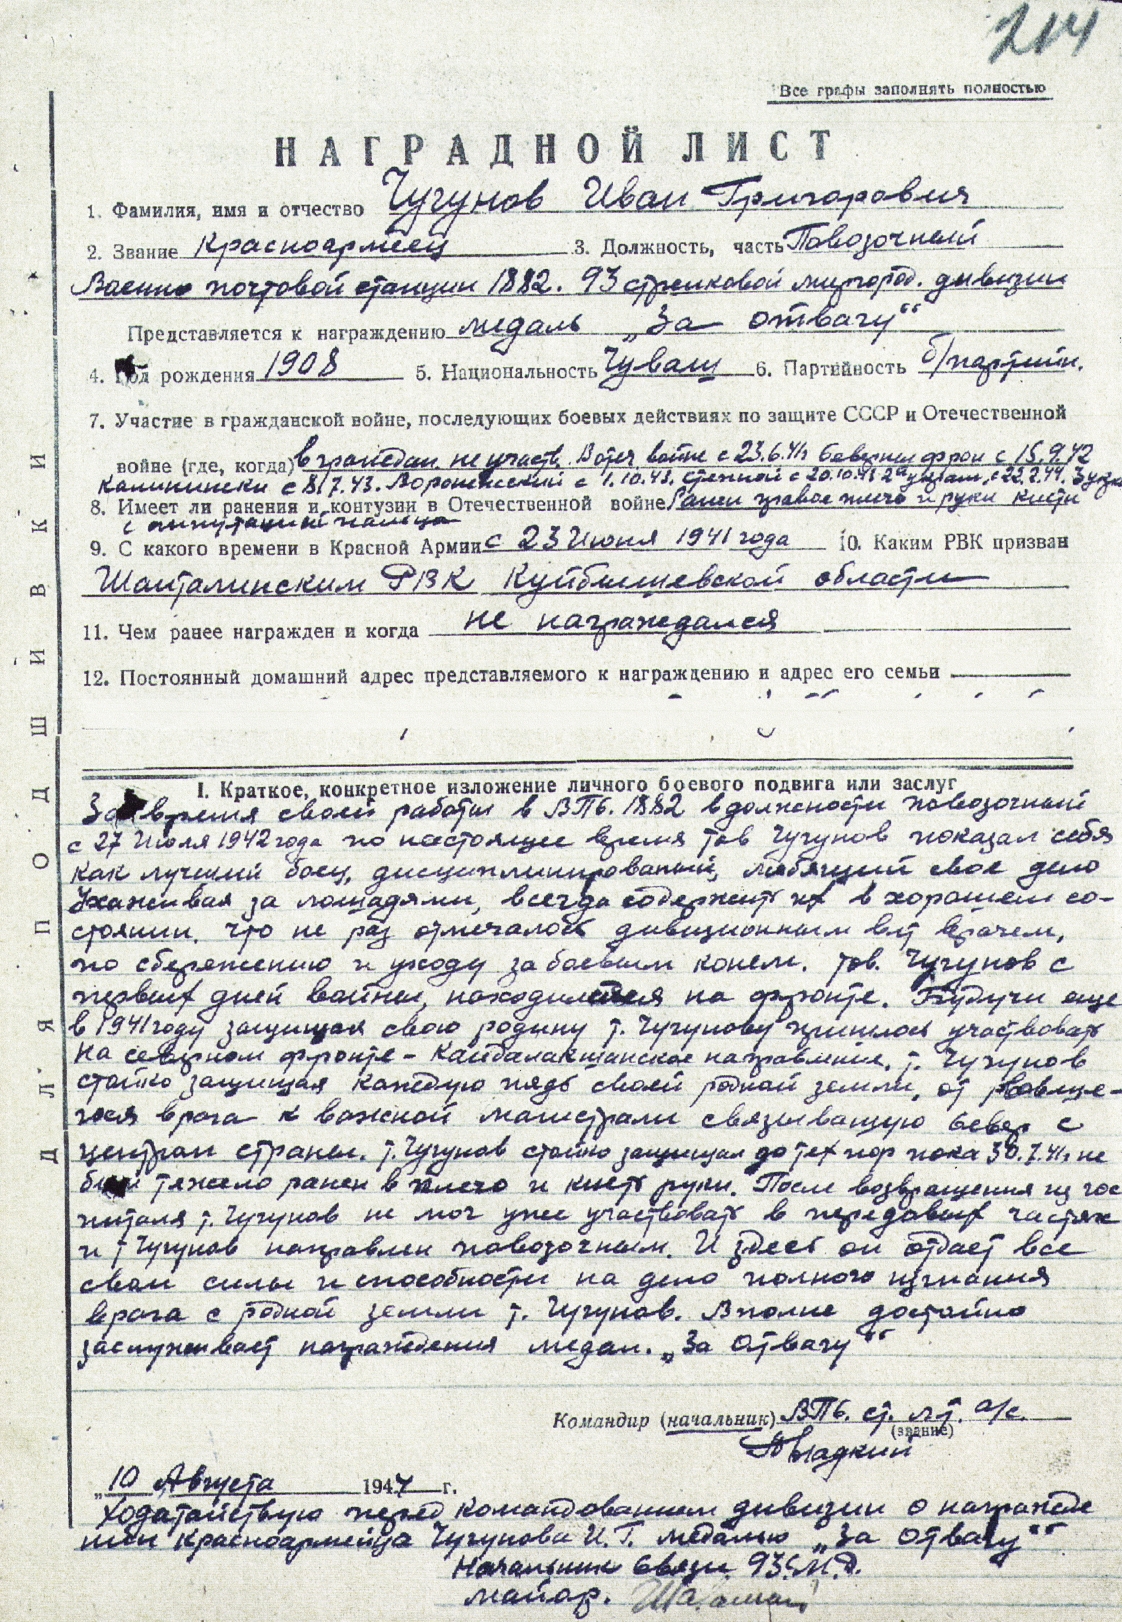 214
Все графы заполнять полностью
НАГРАДНОЙ ЛИСТ
1. Фамилия, имя и отчество Чугунов Иван Григорович
2. Звание Красноармеец 3. Должность, часть Повозочный
Военно почтовой станции 1882. 93 стрелковой миргород. дивизии
Представляется к награждению медаль „За отвагу“
4. Год рождения 1908 5. Национальность Чуваш 6. Партийность б/партийн.
7. Участие в гражданской войне, последующих боевых действиях по защите СССР и Отечественной
войне (где, когда) в граждан. не участв. В отеч. войне с 23.6.41г Северный фрон с 15.9.42
Калинински с 8.7.43. Воронежский с 1.10.43. Степной с 20.10.43 2й украин. с 22.2.44. 3 укра
8. Имеет ли ранения и контузии в Отечественной войне Ранен правое плечо и руки кисти
с ампутацией пальца
9. С какого времени в Красной Армии с 23 Июня 1941 года 10. Каким РВК призван
Шанталинским РВК Куйбышевской области
11. Чем ранее награжден и когда не награждался
12. Постоянный домашний адрес представляемого к награждению и адрес его семьи
I. Краткое, конкретное изложение личного боевого подвига или заслуг
За время своей работы в ВПС. 1882 в должности повозочный
с 27 Июля 1942 года по настоящее время тов Чугунов показал себя
как лучший боец, дисциплинированый, любящий свое дело
Ухаживая за лошадями, всегда содержит их в хорошем со-
стоянии. Что не раз отмечалось дивизионным вет врачем,
по сбережению и уходу за боевым конем. Тов. Чугунов с
первых дней войны, находился на фронте. Будучи еще
в 1941 году защищая свою родину т. Чугунову пришлось участвовать
на северном фронте - Кандалакшанское направление. т. Чугунов
стойко защищая каждую пядь своей родной земли, от рвавше-
гося врага к важной магистрали связывающую север с
центром страны. т. Чугунов стойко защищал до тех пор пока 30.7.41г не
был тяжело ранен в плечо и кисть руки. После возвращения из гос
питаля т. Чугунов не мог уже участвовать в передовых частях
и т Чугунов направлен повозочным. И здесь он отдает все
свои силы и способности на дело полного изгнания
врага с родной земли т. Чугунов. Вполне достойно
заслуживает награждения медал. „За отвагу“
Командир (начальник) ВПС. ст. лт. а/с.
(звание)
„10 Августа 1944 г.
Ходатайствую перед командованием дивизии о награжде
нии красноармейца Чугунова И. Г. медалью „За отвагу“
Начальник связи 93 С.М.Д.
майор.
ДЛЯ ПОДШИВКИ